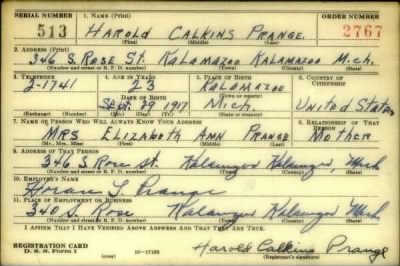 SERIAL NUMBER 1. NAME (Print) ORDER NUMBER
513 HAROLD CALKINS PRANGE 2767
(First) (Middle) (Last)
2. ADDRESS (Print)
346 S. ROSE ST. KALAMAZOO KALAMAZOO MICH.
(Number and street or R. F. D. number) (Town) (County) (State)
3. TELEPHONE 4. AGE IN YEARS 5. PLACE OF BIRTH 6. COUNTRY OF CITIZENSHIP
2-1741 23 KALAMAZOO
DATE OF BIRTH (Town or county)
SEPT. 29 1917 MICH. UNITED STATES
(Exchange) (Number) (Mo.) (Day) (Yr.) (State or country)
7. NAME OF PERSON WHO WILL ALWAYS KNOW YOUR ADDRESS 8. RELATIONSHIP OF THAT PERSON
MRS ELIZABETH ANN PRANGE MOTHER
(Mr., Mrs., Miss) (First) (Middle) (Last)
9. ADDRESS OF THAT PERSON
346 S Rose St. Kalamazoo Kalamazoo, Mich
(Number and street or R. F. D. number) (Town) (County) (State)
10. EMPLOYER'S NAME
L Prange
11. PLACE OF EMPLOYMENT OR BUSINESS
Rose Kalamazoo Kalamazoo Mich
(Number and street or R. F. D. number) (Town) (County) (State)
I AFFIRM THAT I HAVE VERIFIED ABOVE ANSWERS AND THAT THEY ARE TRUE.
REGISTRATION CARD
D. S. S. Form 1 (over) Harold Calkins Prange